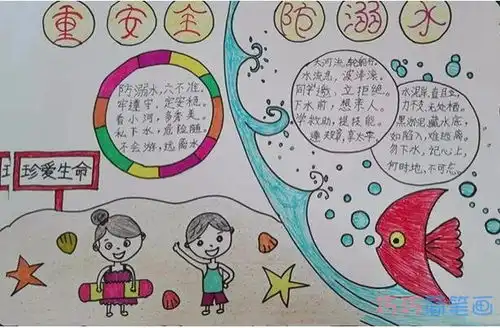 重安全 防溺水
防溺水,六不准。
牢遵守,定安稳。
看小河,多秀美。
私下水,危险随。
不会游,远离水
大河流,轮船行。
水流急,波涛滚。
同学邀,立拒绝。
下水前,想亲人。
学救助,提技能。
遵规章,享太平。
水泥深,直且立,
力不及,无处栖。
黑淤泥,藏水底,
如陷入,难逃离。
勿下水,记心上,
何时地,不可忘。
珍爱生命
简笔画